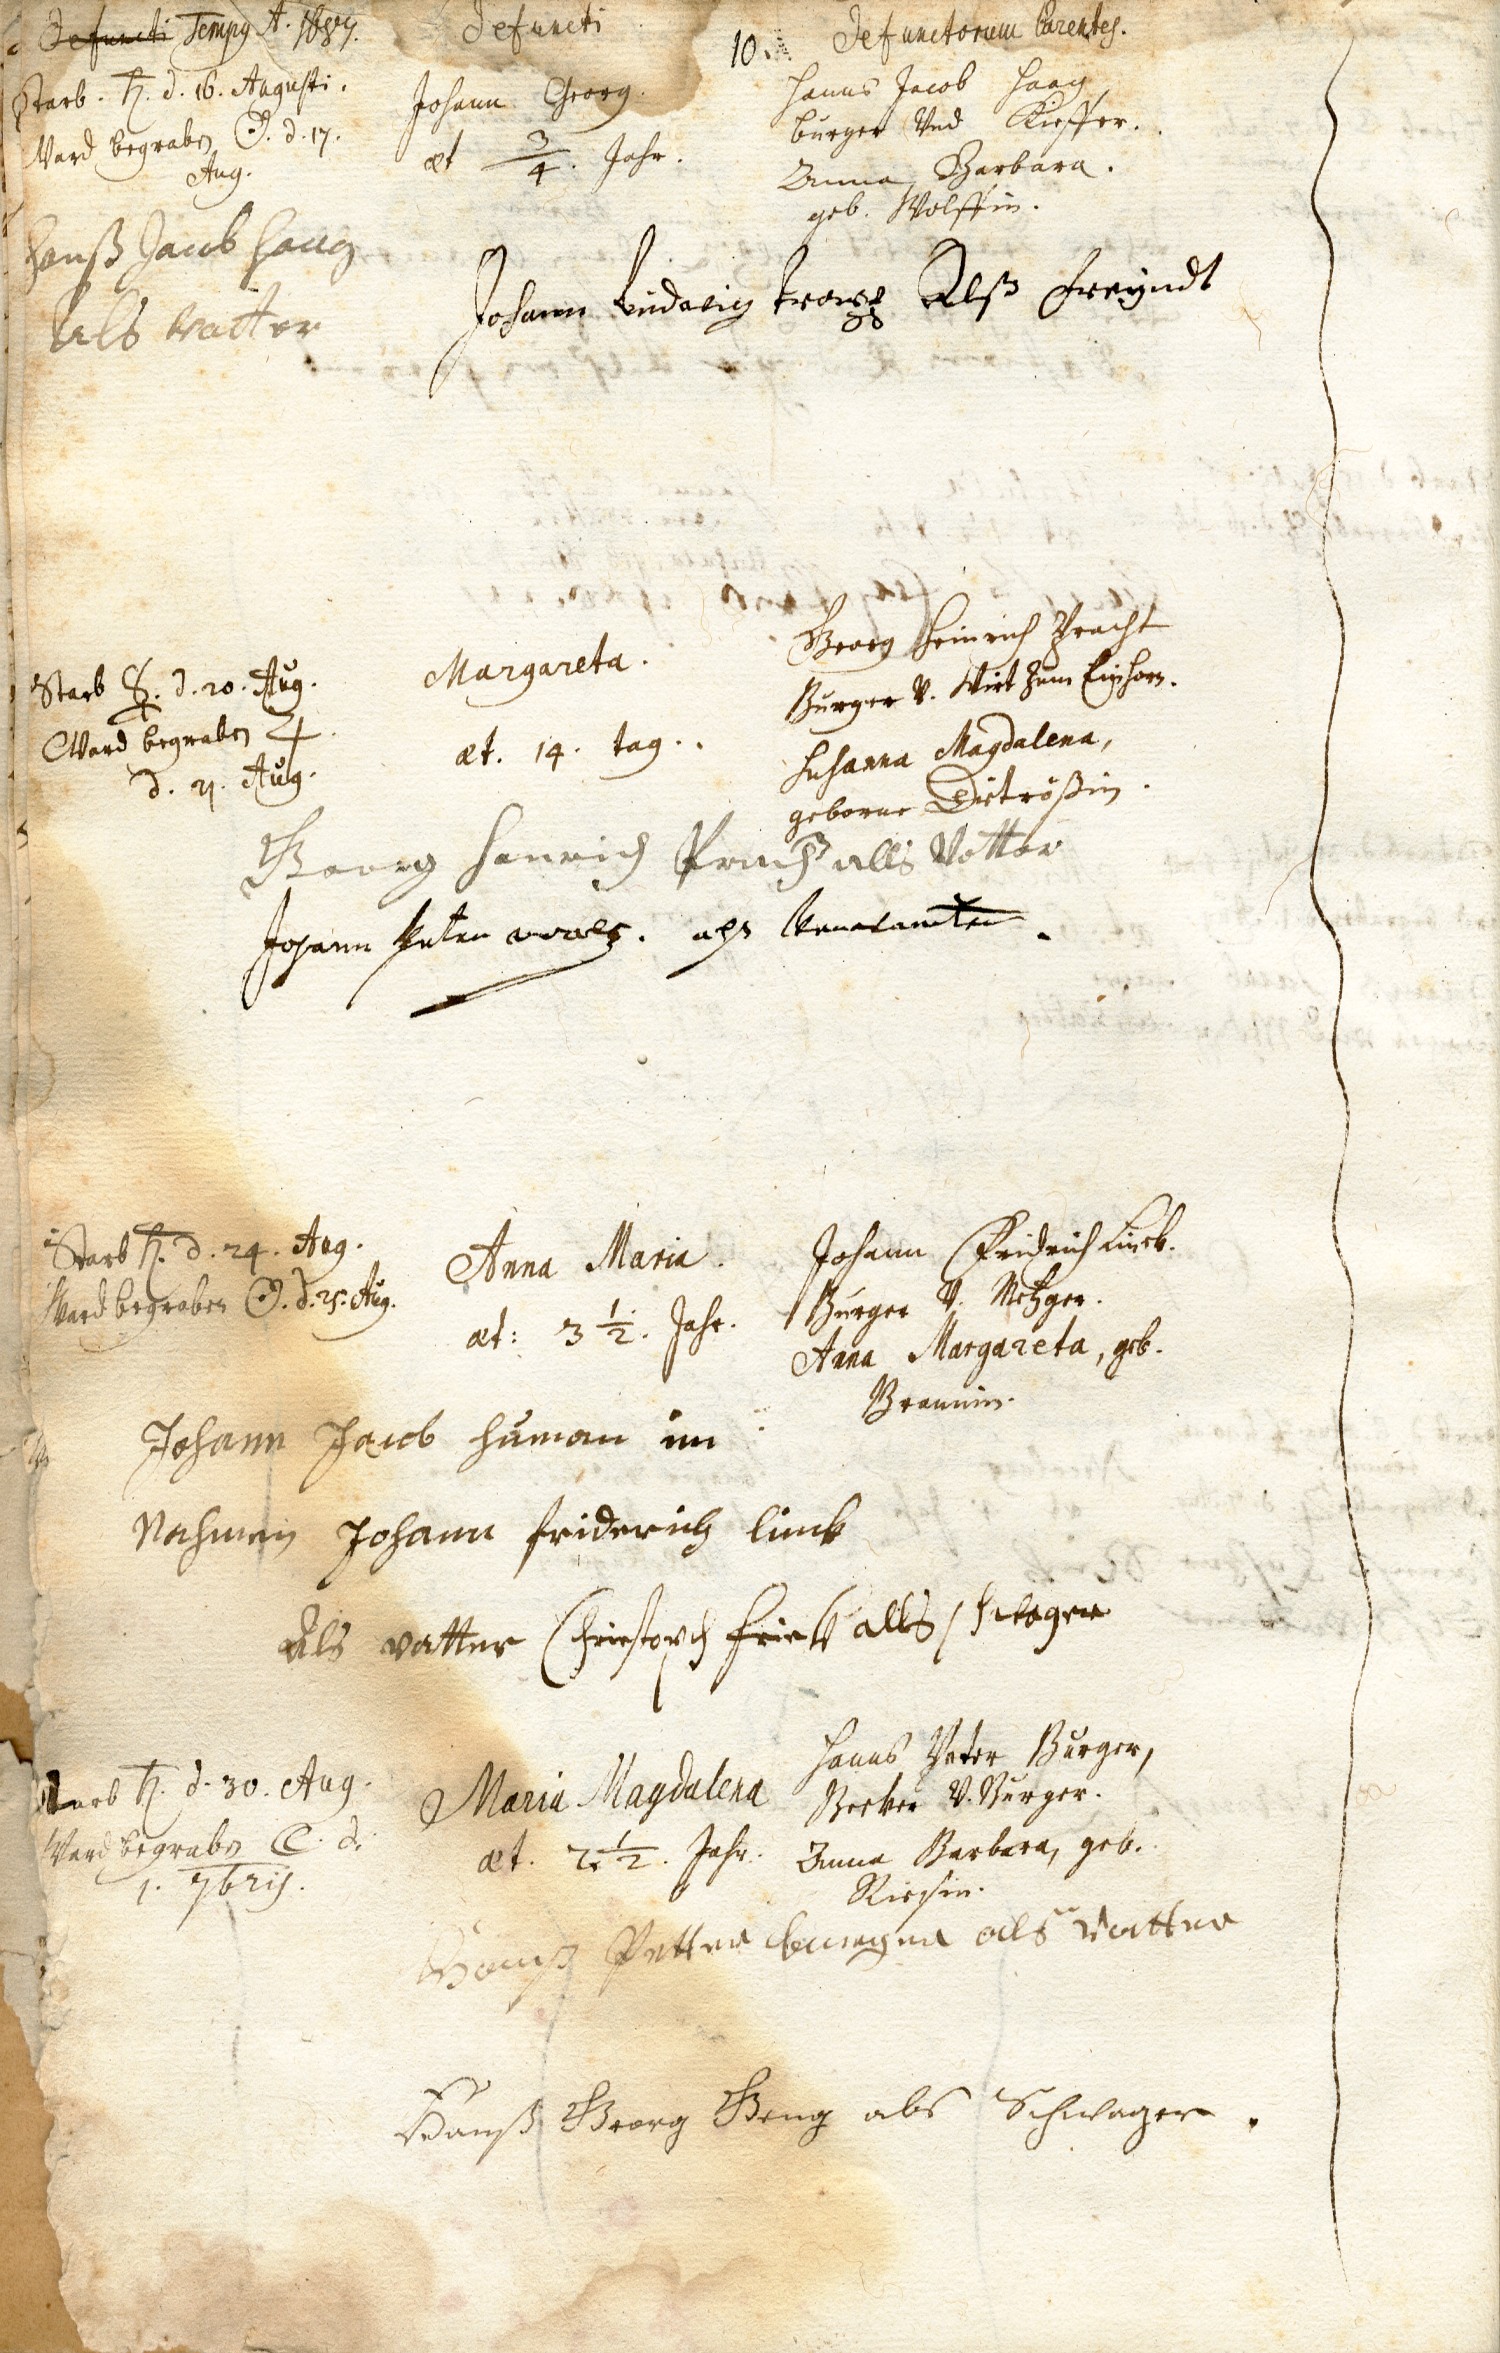 Defuncti Tempg A. 1687. Defuncti 10. Defunctorum Parentes.
Starb. ♄. d. 16. Augusti.
Ward begraben ☉. d. 17.
Aug.
Johann Georg.
æt 3/4. Jahr.
Hanns Jacob Haag,
burger Und Kieffer.
Anna Barbara.
geb. Wolffin.
Hanß Jacob Haug
als vatter
Johann Ludwig Alß freyndt
Starb ☿. d. 20. Aug.
Ward begraben ♃.
d. 21. Aug.
Margareta.
æt. 14. tag.
Georg Heinrich Pracht
Burger V. Wirt zum Einhorn.
Susanna Magdalena,
geborne
Georg Henrich Pracht alls Vatter
Johann Peter als
Starb ♄. d. 24. Aug.
Ward begraben ☉. d. 25. Aug.
Anna Maria.
æt: 3 1/2. Jahr.
Johann Fridrich Linck.
Burger V. Metzger.
Anna Margareta, geb.
Braunin.
Johann Jacob human im
Nahmen Johann friderich linck
Als vatter Christoph alls schwager
Starb ♄. d. 30. Aug.
Ward begraben ☾. d.
1. 7bris.
Maria Magdalena
æt. 2 1/2. Jahr.
Hanns Peter Burger,
Becker V. Burger.
Anna Barbara, geb.
Riesin.
Hanß Petter burger als vatter
Hanß Georg Beng als Schwager.